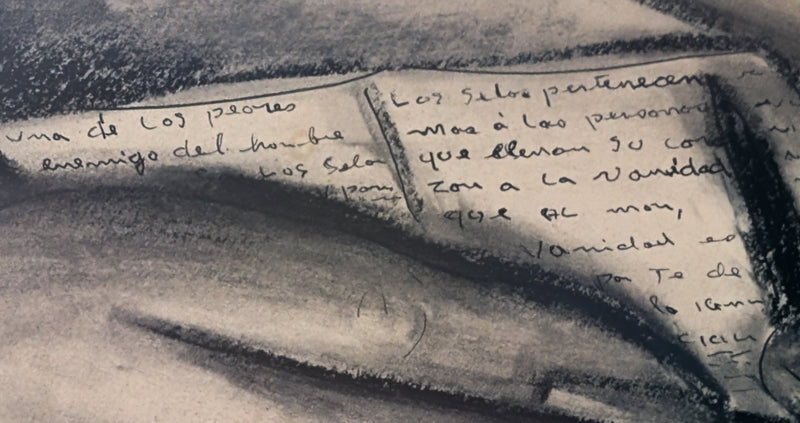 una de Los peores
enemigo del hombre
Los Selos
Los Selos pertenecen
mas á las personas
que llenan su cora
zon a La vanidad
que al mor,
Vanidad es
par Te de
la